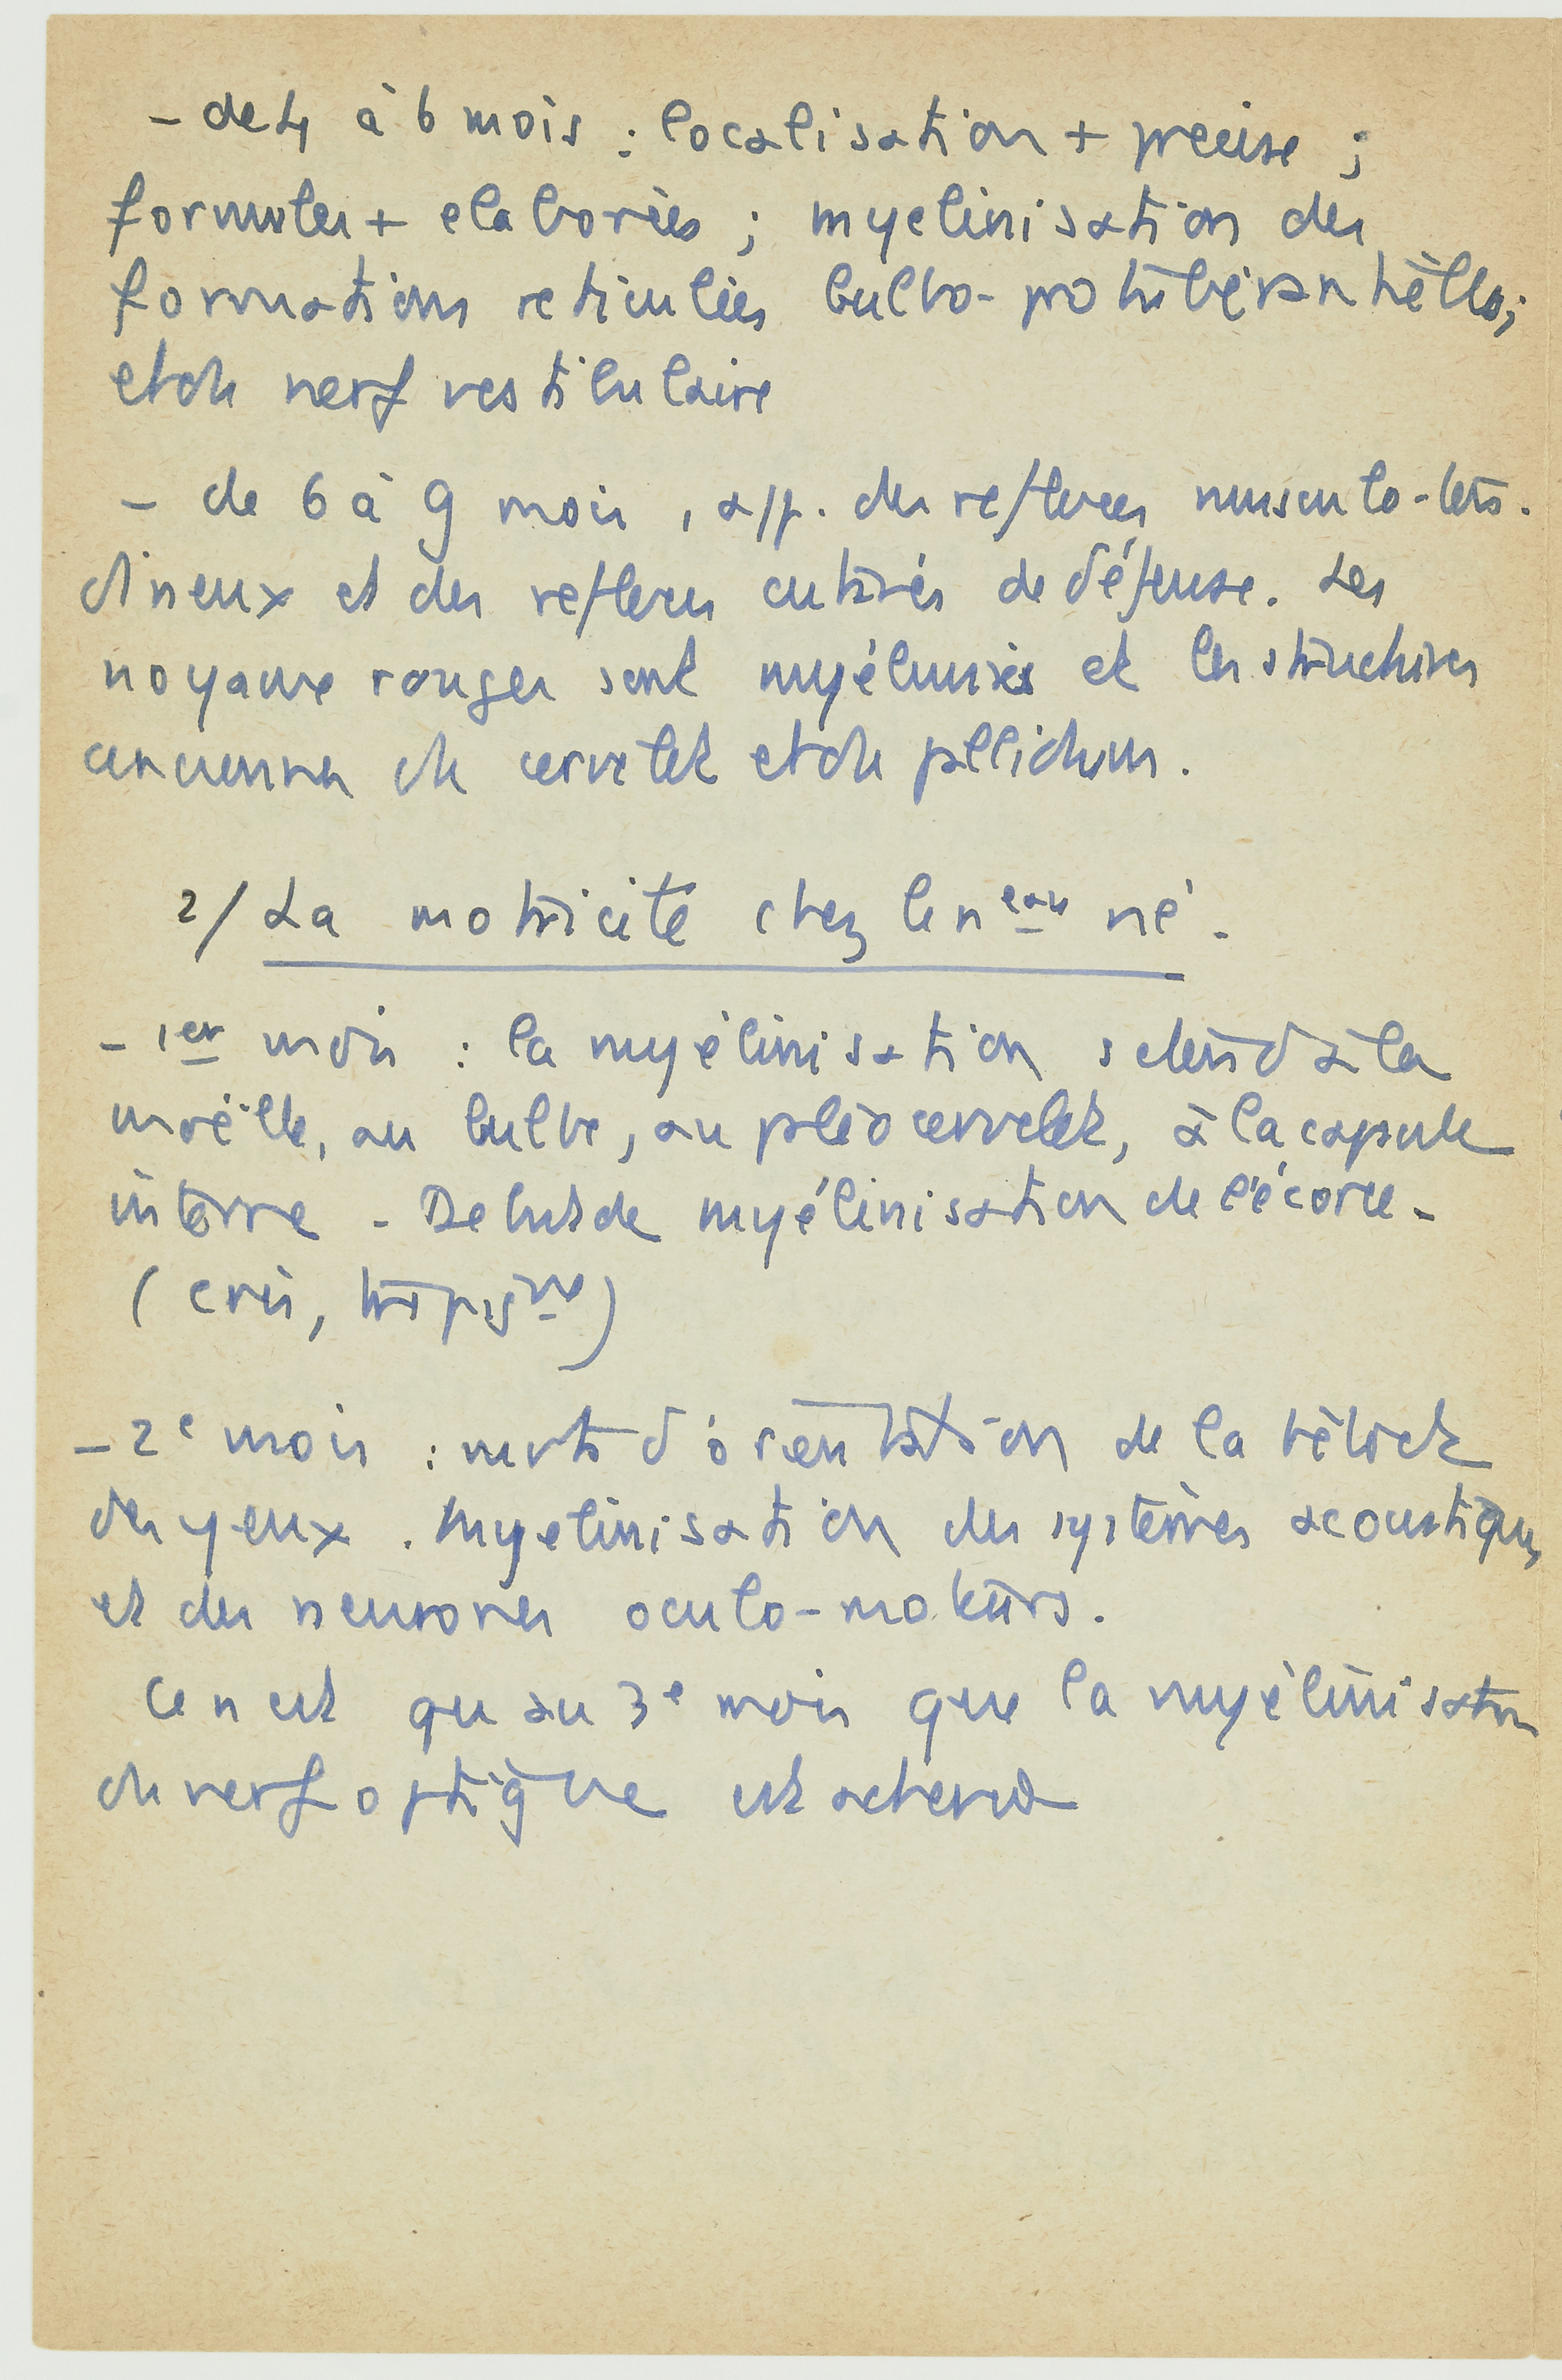 - de 4 à 6 mois : localisation + precise ;
formules + elaborées ; myelinisation des
formations reticulées bulbo-protubérantielles ;
et du nerf vestibulaire
- de 6 à 9 mois, app. des reflexes musculo-ten-
dineux et des reflexes cutanés de défense. Les
noyaux rouges sont myélinisés et les structures
anciennes du cervelet et du pallidum.
2/ La motricité chez le neau né.
- 1er mois : la myélinisation s'étend à la
moëlle, au bulbe, au paléocervelet, à la capsule
interne - Debut de myélinisation de l'écorce -
(cris, tropisme)
- 2e mois : mvts d'orientation de la tête et
des yeux. Myelinisation des systèmes acoustiques
et des neurones oculo-moteurs.
Ce n'est qu'au 3e mois que la myélinisation
du nerf optique est achevée